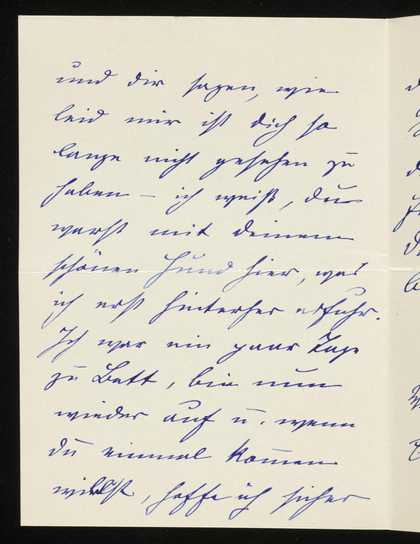 und dir sagen, wie
leid mir ist dich so
lange nicht gesehen zu
haben – ich weiß, du
warst mit deinem
schönen Hund hier, was
ich erst hinterher erfuhr.
Ich war ein paar Tage
zu Bett, bin nun
wieder auf u. wenn
du einmal kommen
willst, hoffe ich sicher